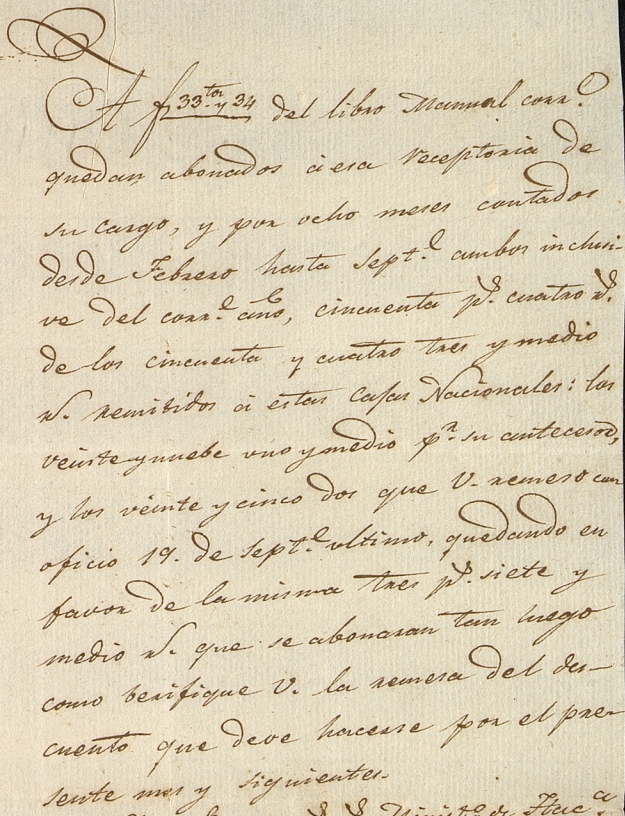 A f 33 tos y 34 del libro Manual corr.e
quedan abonados á esa receptoria de
su cargo, y por ocho meses contados
desde Febrero hasta Sept.e ambos inclusi-
ve del corr.e año, cincuenta p.s cuatro r.s
de los cincuenta y cuatro tres y medio
r.s remitidos á estas Casas Nacionales: los
veinte y nuebe uno y medio p.r su antecesor,
y los veinte y cinco dos que V. remeso con
oficio 19. de Sept.e ultimo, quedando en
favor de la misma tres p.s siete y
medio r.s que se abonaran tan luego
como berifique V. la remesa del des-
cuento que deve hacerse por el pre-
sente mes y siguientes.
Minist.o de Hac.a